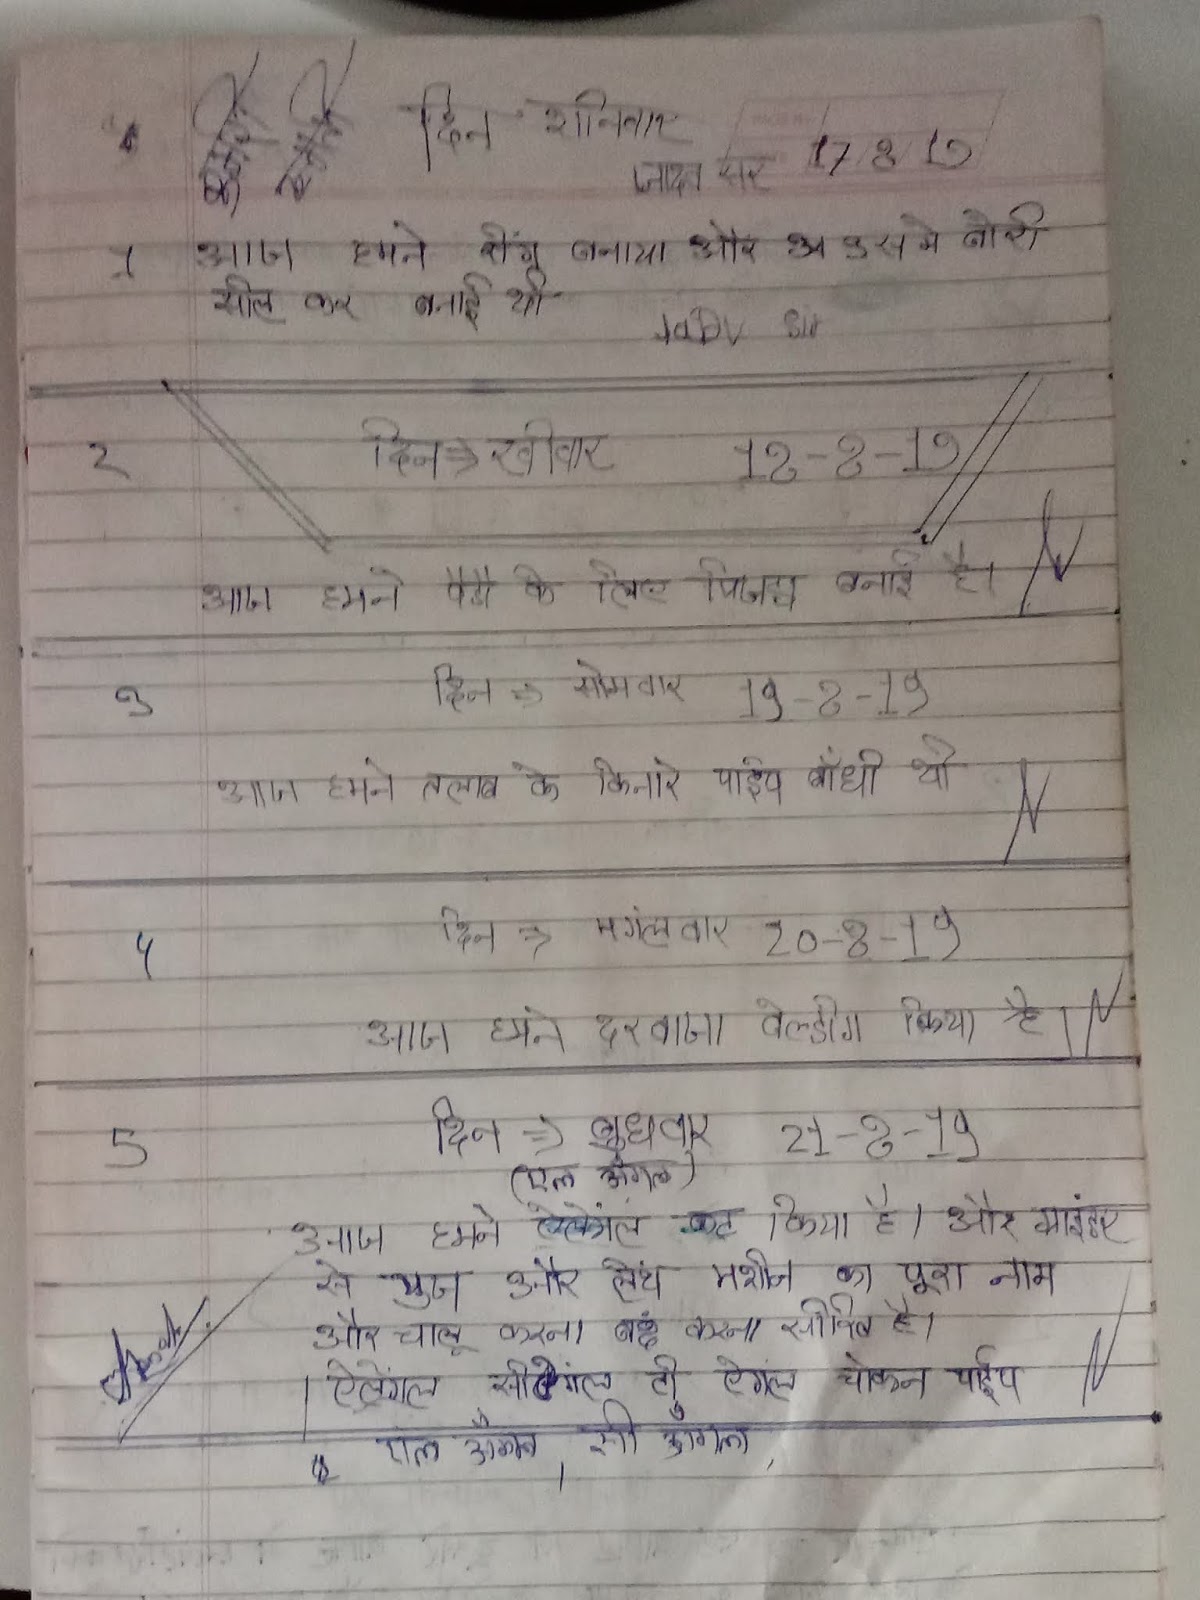 दिन शनिवार
जादव सर 17/8/19
1 आज हमने रींग बनाया और उसमे बोरी
सील कर बनाई थी
Jadv Sir
2 दिन ⇒ रवीवार 18-8-19
आज हमने पैडौ के लिए पिजरा बनाई है।
3 दिन ⇒ सोमवार 19-8-19
आज हमने तलाब के किनारे पाईप बाँधी थी
4 दिन ⇒ मगंलवार 20-8-19
आज हमने दरवाजा वेल्डींग किया है।
5 दिन ⇒ बुधवार 21-8-19
(एल अँगल)
आज हमने कट किया है। और ग्राइंडर
से और लेथ मशीन का पूरा नाम
और चालू करना बदं करना सीखि है।
ऐलेंगल टी ऐगंल चोकन पाईप
एल अँगल, सी अँगल,